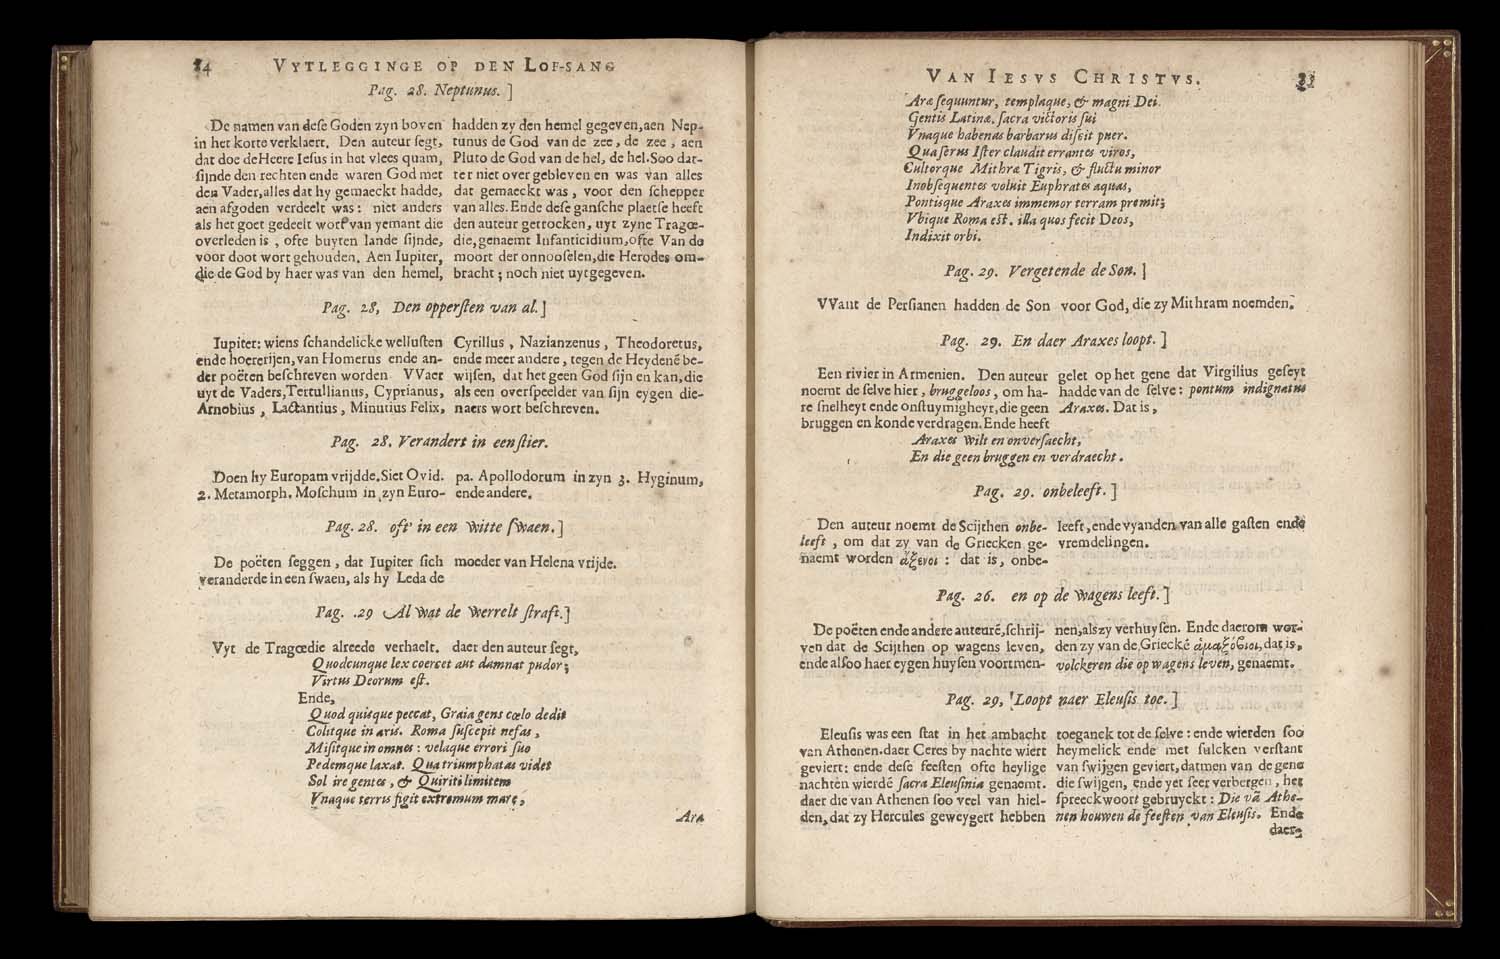 84 VYTLEGGINGE OP DEN LOF-SANG
Pag. 28. Neptunus. ]
De namen van deſe Goden zyn boven
in het korte verklaert. Den auteur ſegt,
dat doe de Heere Ieſus in het vlees quam,
ſijnde den rechten ende waren God met
den Vader, alles dat hy gemaeckt hadde,
aen afgoden verdeelt was: niet anders
als het goet gedeelt wort van yemant die
overleden is, ofte buyten lande ſijnde,
voor doot wort gehouden. Aen Iupiter,
die de God by haer was van den hemel,
hadden zy den hemel gegeven, aen Nep-
tunus de God van de zee, de zee, aen
Pluto de God van de hel, de hel. Soo dat-
ter niet over gebleven en was van alles
dat gemaeckt was, voor den ſchepper
van alles. Ende deſe ganſche plaetſe heeft
den auteur getrocken, uyt zyne Tragœ-
die, genaemt Infanticidium, ofte Van de
moort der onnooſelen, die Herodes om-
bracht; noch niet uytgegeven.
Pag. 28, Den opperſten van al. ]
Iupiter: wiens ſchandelicke welluſten
ende hoererijen, van Homerus ende an-
der poëten beſchreven worden VVaer
uyt de Vaders, Tertullianus, Cyprianus,
Arnobius, Lactantius, Minutius Felix,
Cyrillus, Nazianzenus, Theodoretus,
ende meer andere, tegen de Heydenē be-
wijſen, dat het geen God ſijn en kan, die
als een overſpeelder van ſijn eygen die-
naers wort beſchreven.
Pag. 28. Verandert in een ſtier.
Doen hy Europam vrijdde. Siet Ovid.
2. Metamorph. Moſchum in zyn Euro-
pa. Apollodorum in zyn 3. Hyginum,
ende andere.
Pag. 28. oft' in een witte ſwaen. ]
De poëten ſeggen, dat Iupiter ſich
veranderde in een ſwaen, als hy Leda de
moeder van Helena vrijde.
Pag. .29 Al wat de werrelt ſtraft. ]
Vyt de Tragœdie alreede verhaelt. daer den auteur ſegt,
Quodcunque lex coercet aut damnat pudor;
Virtus Deorum eſt.
Ende,
Quod quiſque peccat, Graia gens cœlo dedit
Colitque in aris. Roma ſuſcepit nefas,
Miſitque in omnes: velaque errori ſuo
Pedemque laxat. Qua triumphatas videt
Sol ire gentes, & Quiriti limitem
Vnaque terris figit extremum mare,
Aræ
VAN IESVS CHRISTVS.
Aræ ſequuntur, templaque, & magni Dei.
Gentis Latinæ. ſacra victoris ſui
Vnaque habenas barbarus diſcit puer.
Qua ſerus Iſter claudit errantes viros,
Cultorque Mithræ Tigris, & fluctu minor
Inobſequentes voluit Euphrates aquas,
Pontisque Araxes immemor terram premit;
Vbique Roma eſt. illa quos fecit Deos,
Indixit orbi.
Pag. 29. Vergetende de Son. ]
VVant de Perſianen hadden de Son voor God, die zy Mithram noemden.
Pag. 29. En daer Araxes loopt. ]
Een rivier in Armenien. Den auteur
noemt de ſelve hier, bruggeloos, om ha-
re ſnelheyt ende onſtuymigheyt, die geen
bruggen en konde verdragen. Ende heeft
gelet op het gene dat Virgilius geſeyt
hadde van de ſelve: pontum indignatus
Araxes. Dat is,
Araxes wilt en onverſaecht,
En die geen bruggen en verdraecht.
Pag. 29. onbeleeft. ]
Den auteur noemt de Scijthen onbe-
leeft, om dat zy van de Griecken ge-
naemt worden ἄξενοι: dat is, onbe-
leeft, ende vyanden van alle gaſten ende
vremdelingen.
Pag. 26. en op de wagens leeft. ]
De poëten ende andere auteurē, ſchrij-
ven dat de Scijthen op wagens leven,
ende alſoo haer eygen huyſen voortmen-
nen, als zy verhuyſen. Ende daerom wor-
den zy van de Grieckē ἁμαξόβιοι, dat is,
volckeren die op wagens leven, genaemt.
Pag. 29, Loopt naer Eleuſis toe. ]
Eleuſis was een ſtat in het ambacht
van Athenen. daer Ceres by nachte wiert
geviert: ende deſe feeſten ofte heylige
nachten wierdē ſacra Eleuſinia genaemt.
daer die van Athenen ſoo veel van hiel-
den, dat zy Hercules geweygert hebben
toeganck tot de ſelve: ende wierden ſoo
heymelick ende met ſulcken verſtant
van ſwijgen geviert, datmen van de gene
die ſwijgen, ende yet ſeer verbergen, het
ſpreeckwoort gebruyckt: Die vā Athe-
nen houwen de feeſten van Eleuſis. Ende
daer